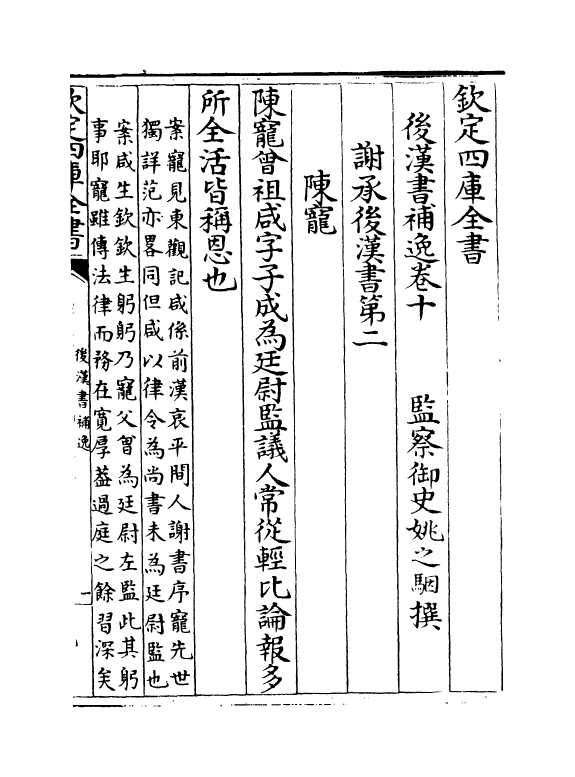 欽定四庫全書
後漢書補逸卷十　監察御史姚之駰撰
謝承後漢書第二
陳寵
陳寵曾祖咸字子成為廷尉監議人常從輕比論報多
所全活皆稱恩也
案寵見東觀記咸係前漢哀平間人謝書序寵先世
獨詳范亦畧同但咸以律令為尚書未為廷尉監也
案咸生欽欽生躬躬乃寵父曾為廷尉左監此其躬
事耶寵雖傳法律而務在寛厚葢過庭之餘習深矣
欽定四庫全書
後漢書補逸
一